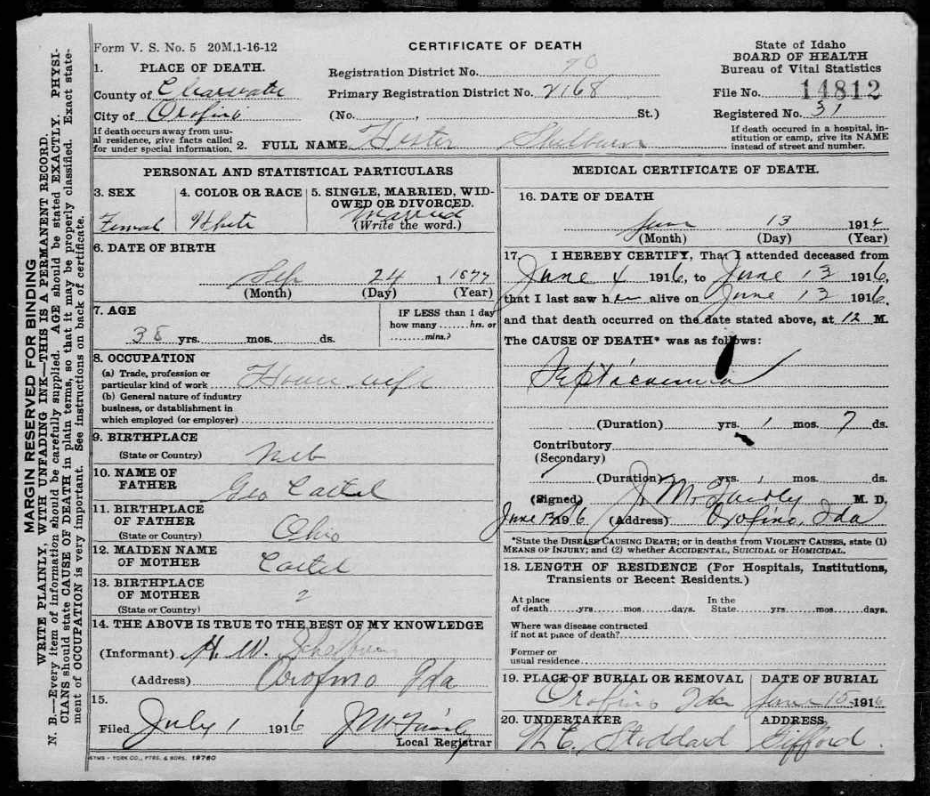 MARGIN RESERVED FOR BINDING
WRITE PLAINLY, WITH UNFADING INK—THIS IS A PERMANENT RECORD.
N. B.—Every item of information should be carefully supplied. AGE should be stated EXACTLY. PHYSI-
CIANS should state CAUSE OF DEATH in plain terms, so that it may be properly classified. Exact state-
ment of OCCUPATION is very important. See instructions on back of certificate.
Form V. S. No. 5 20M.1-16-12
CERTIFICATE OF DEATH
State of Idaho
BOARD OF HEALTH
Bureau of Vital Statistics
File No. 14812
Registered No. 31
If death occured in a hospital, in-
stitution or camp, give its NAME
instead of street and number.
1. PLACE OF DEATH.
County of Clearwater
City of Orofino
If death occurs away from usu-
al residence, give facts called
for under special information.
Registration District No. 90
Primary Registration District No. 2168
(No. , St.)
2. FULL NAME Hester Shelburn
PERSONAL AND STATISTICAL PARTICULARS
3. SEX
Femal
4. COLOR OR RACE
White
5. SINGLE, MARRIED, WID-
OWED OR DIVORCED.
Married
(Write the word.)
6. DATE OF BIRTH
Sep 24 1 1877
(Month) (Day) (Year)
7. AGE
38 yrs. mos. ds.
IF LESS than 1 day
how many ....... hrs. or
....... mins.?
8. OCCUPATION
(a) Trade, profession or
particular kind of work House wife
(b) General nature of industry
business, or dstablishment in
which employed (or employer)
9. BIRTHPLACE
(State or Country) Neb
10. NAME OF
FATHER Geo Castel
11. BIRTHPLACE
OF FATHER
(State or Country) Ohio
12. MAIDEN NAME
OF MOTHER Castel
13. BIRTHPLACE
OF MOTHER
(State or Country) ?
14. THE ABOVE IS TRUE TO THE BEST OF MY KNOWLEDGE
(Informant) H. W. Shelburn
(Address) Orofino Ida
15.
Filed July 1 1916 J M Fairly
Local Registrar
MEDICAL CERTIFICATE OF DEATH.
16. DATE OF DEATH
June 13 1916
(Month) (Day) (Year)
17. I HEREBY CERTIFY, That I attended deceased from
June 4 1916, to June 13 1916,
that I last saw her alive on June 13 1916.
and that death occurred on the date stated above, at 12 M.
The CAUSE OF DEATH* was as follows:
Septicaemia
(Duration) yrs. 1 mos. 7 ds.
Contributory
(Secondary)
(Duration) yrs. mos. ds.
(Signed) J. M. Fairly M. D.
June 13 1916 (Address) Orofino, Ida
*State the DISEASE CAUSING DEATH; or in deaths from VIOLENT CAUSES, state (1)
MEANS OF INJURY; and (2) whether ACCIDENTAL, SUICIDAL or HOMICIDAL.
18. LENGTH OF RESIDENCE (For Hospitals, Institutions,
Transients or Recent Residents.)
At place
of death......yrs.......mos.......days.
In the
State......yrs.......mos.......days.
Where was disease contracted
if not at place of death?
Former or
usual residence
19. PLACE OF BURIAL OR REMOVAL
Orofino Ida
DATE OF BURIAL
June 15 1916
20. UNDERTAKER
Stoddard
ADDRESS
Gifford.
SYMS - YORK CO., PTRS. & BDRS. 19760